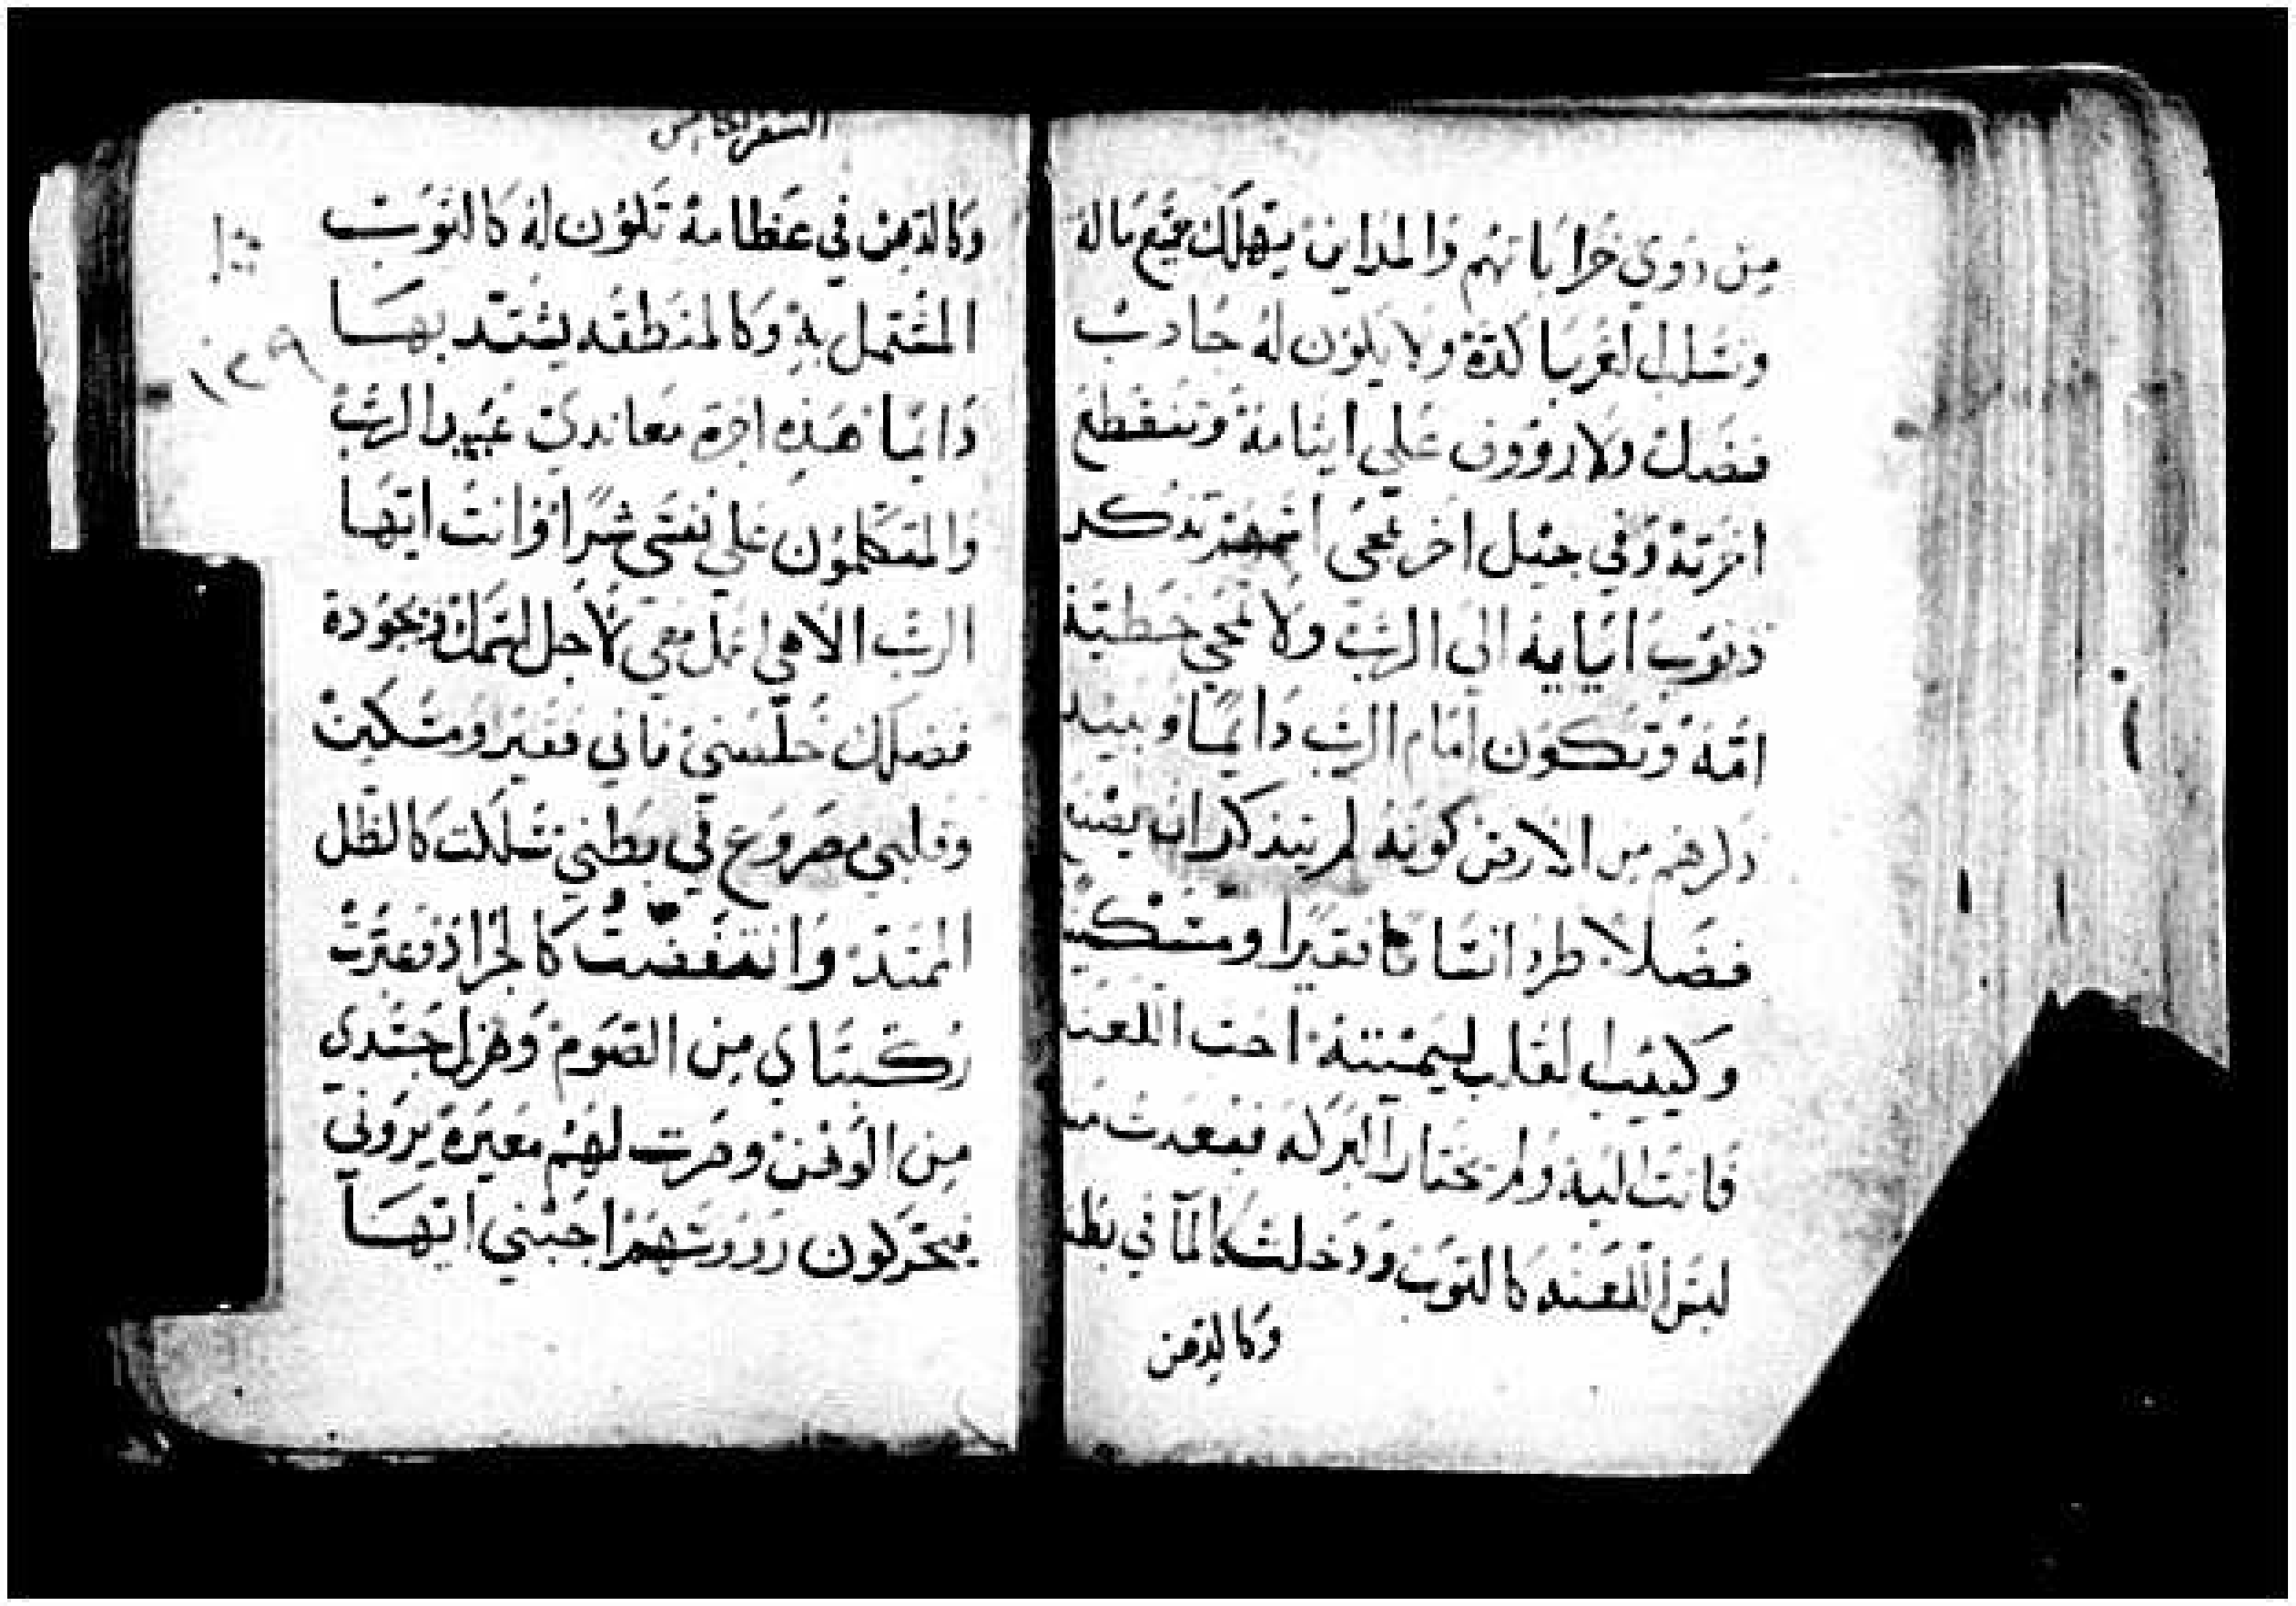 من ذوي خراباتهم والمداين يتهلك جميع ماله
وتسلب الغربا كده ولا يكون له جادب
فضل ولا رووف على ايتامه وتنقطع
اخرته وفي جيل اخر تمحي تذكر
ذنوب ابايه الى الرب ولا تمحي خطية
امه وتكون امام الرب دايما ويبيد
ذكرهم من الارض كونه لم يتذكر ان يصنع
فضلا طرد انسانا فقيرا ومسكينا
وكييب القلب ليميته احب اللعنه
فاتت اليه ولم يختار البركه فبعدت منه
لبس اللعنه كالتوب ودخلت كالمآ في بطنه
وكالدهن
السفر الخامس
وكالدهن في عظامه تكون له كالتوب
المشتمل به وكالمنطقه يشتد بها
دايما هذه اجرة معانديَّ عند الرب
والمتكلمون على نفسي شرا وانت ايها
الرب الاهي اعمل معي لاجل اسمك فبجودة
فضلك خلسني فاني فقير ومسكين
وقلبي مصروع في بطني سلكت كالظل
الممتد وانتفضت كالجراد فعترت
ركبتاي من الصوم وهزل جسدي
من الدهن وصرت لهم معيرة يروني
فيحركون رووسهم اجبني ايها
١٢٩